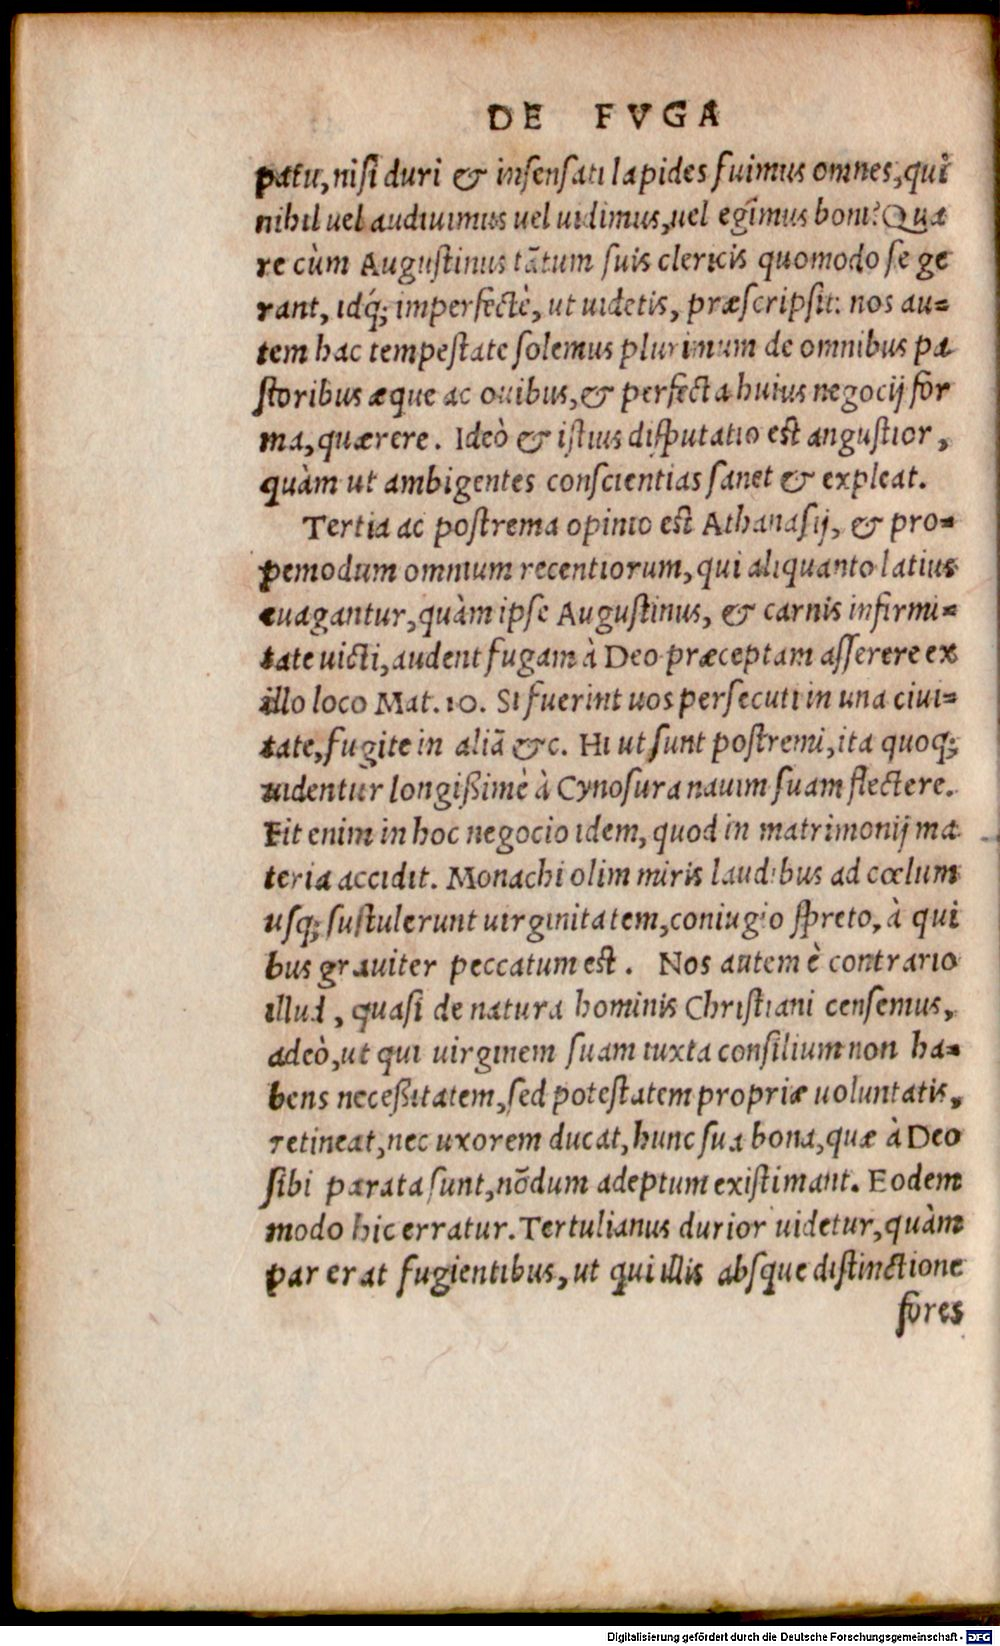 DE FVGA
patu, nisi duri & insensati lapides fuimus omnes, qui
nihil uel audiuimus uel uidimus, uel egimus boni? Qua
re cùm Augustinus tãtum suis clericis quomodo se ge
rant, idq́; imperfectè, ut uidetis, præscripsit: nos au=
tem hac tempestate solemus plurimum de omnibus pa
storibus æque ac ouibus, & perfecta huius negocij for
ma, quærere. Ideò & istius disputatio est angustior,
quàm ut ambigentes conscientias sanet & expleat.
Tertia ac postrema opinio est Athanasij, & pro=
pemodum omnium recentiorum, qui aliquanto latius
euagantur, quàm ipse Augustinus, & carnis infirmi=
tate uicti, audent fugam à Deo præceptam asserere ex
illo loco Mat. 10. Si fuerint uos persecuti in una ciui=
tate, fugite in aliã &c. Hi ut sunt postremi, ita quoq;
uidentur longißimè à Cynosura nauim suam flectere.
Fit enim in hoc negocio idem, quod in matrimonij ma
teria accidit. Monachi olim miris laudibus ad cœlum
usq; sustulerunt uirginitatem, coniugio spreto, à qui
bus grauiter peccatum est. Nos autem è contrario
illud, quasi de natura hominis Christiani censemus,
adeò, ut qui uirginem suam iuxta consilium non ha=
bens neceßitatem, sed potestatem propriæ uoluntatis,
retineat, nec uxorem ducat, hunc sua bona, quæ à Deo
sibi parata sunt, nõdum adeptum existimant. Eodem
modo hic erratur. Tertulianus durior uidetur, quàm
par erat fugientibus, ut qui illis absque distinctione
fores
Digitalisierung gefördert durch die Deutsche Forschungsgemeinschaft - DFG